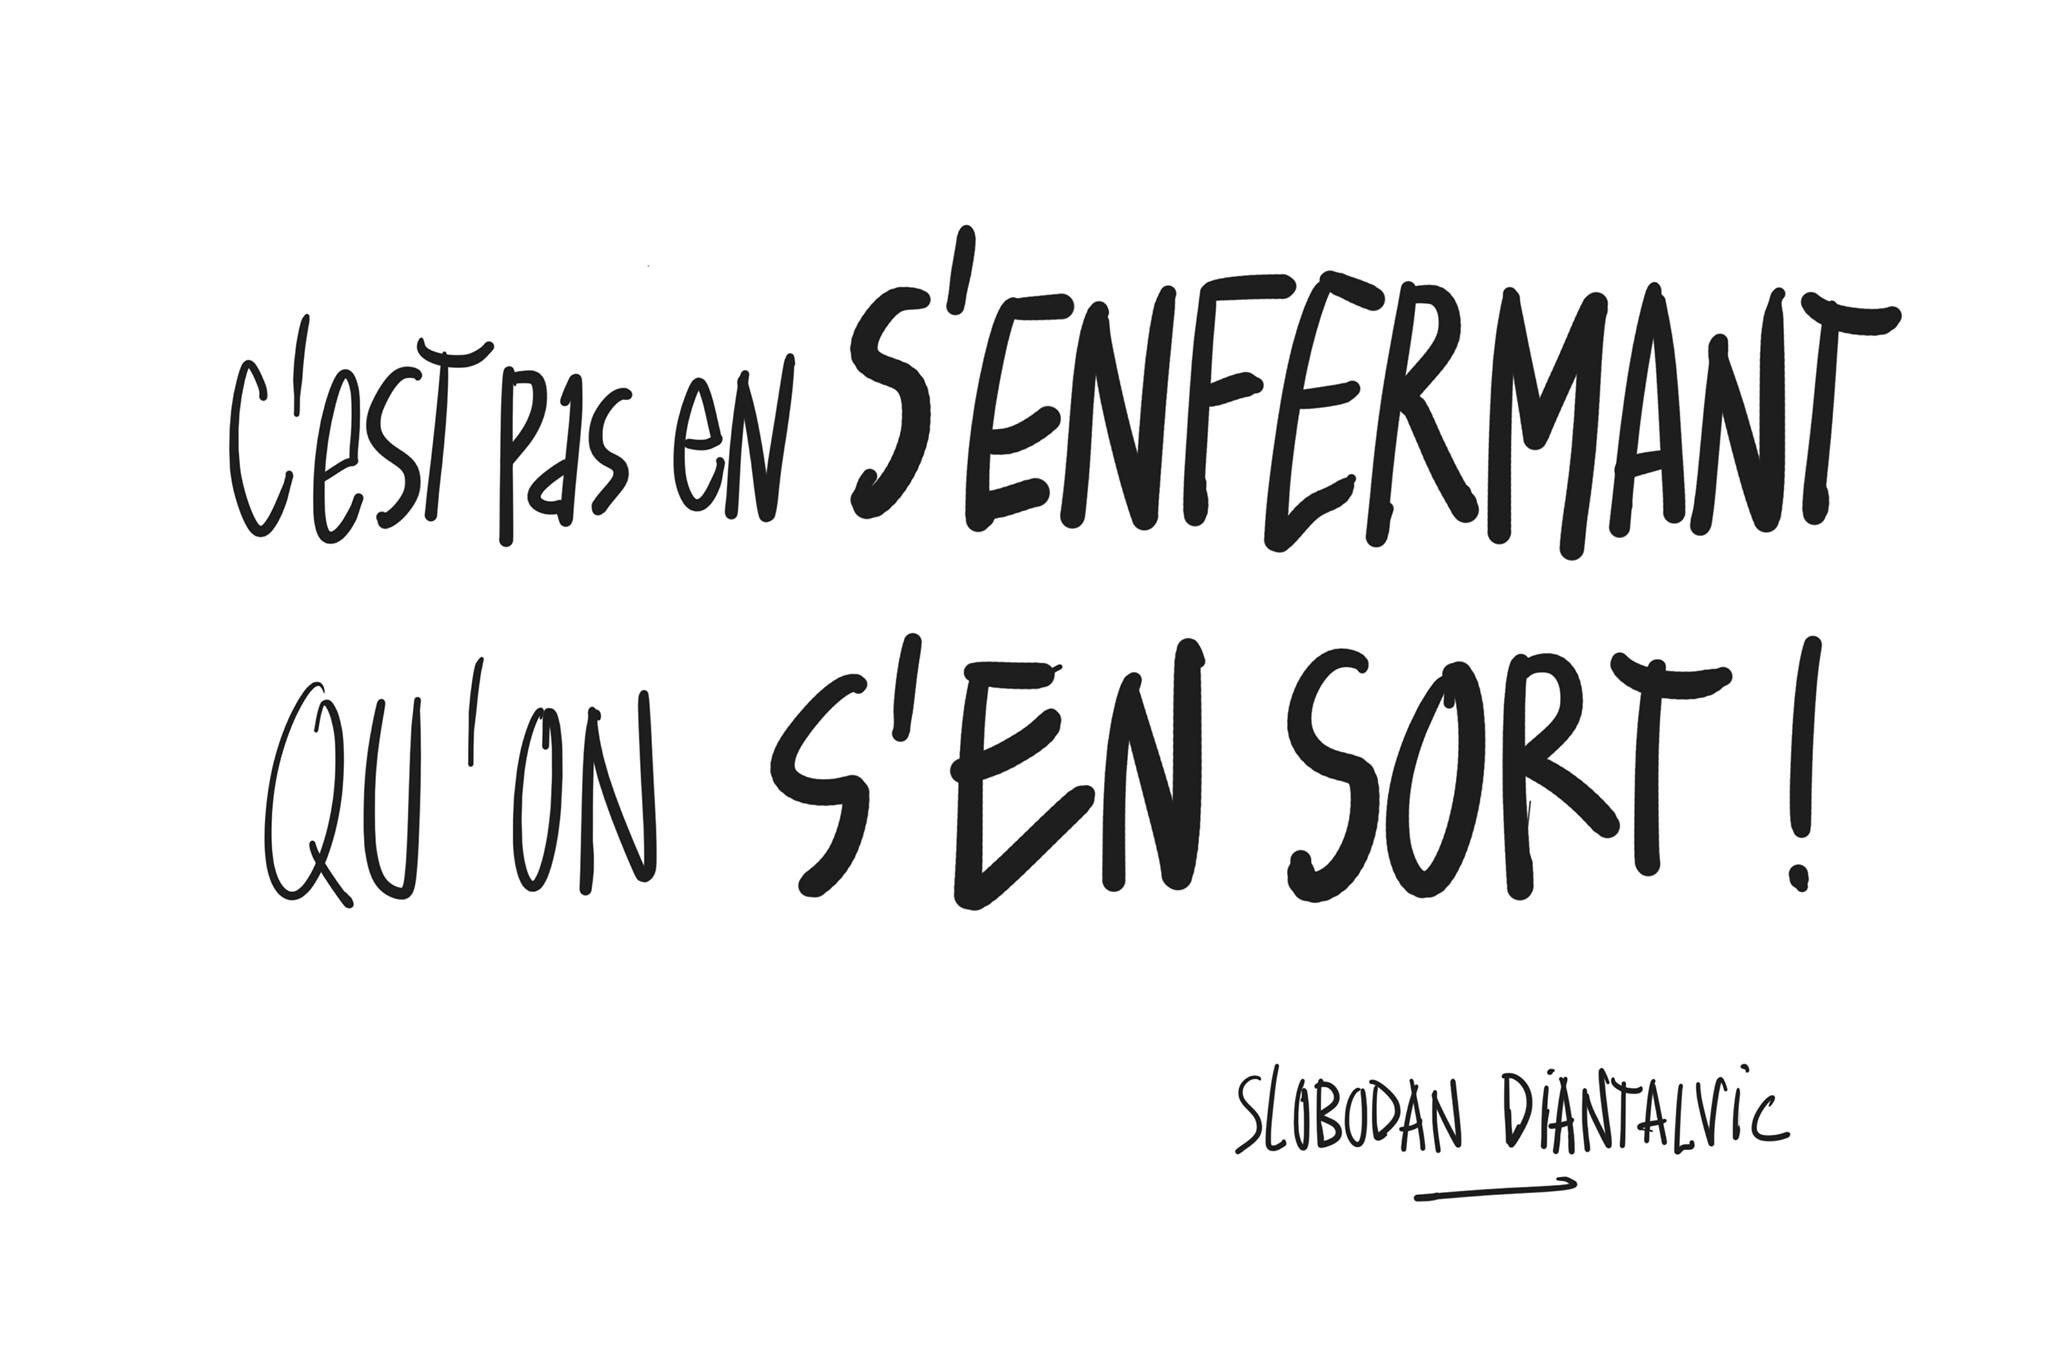 c'est pas en S'ENFERMANT
QU'ON S'EN SORT !
SLOBODAN DIANTALVIC